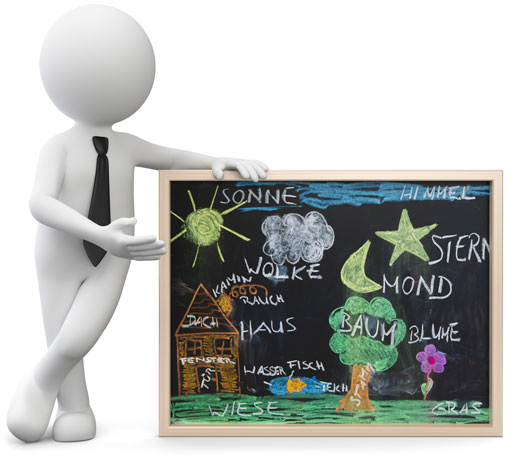 SONNE
HIMMEL
STERN
WOLKE
KAMIN
MOND
RAUCH
DACH
HAUS
BAUM
BLUME
FENSTER
TÜR
WASSER
FISCH
TEICH
STAMM
WIESE
GRAS